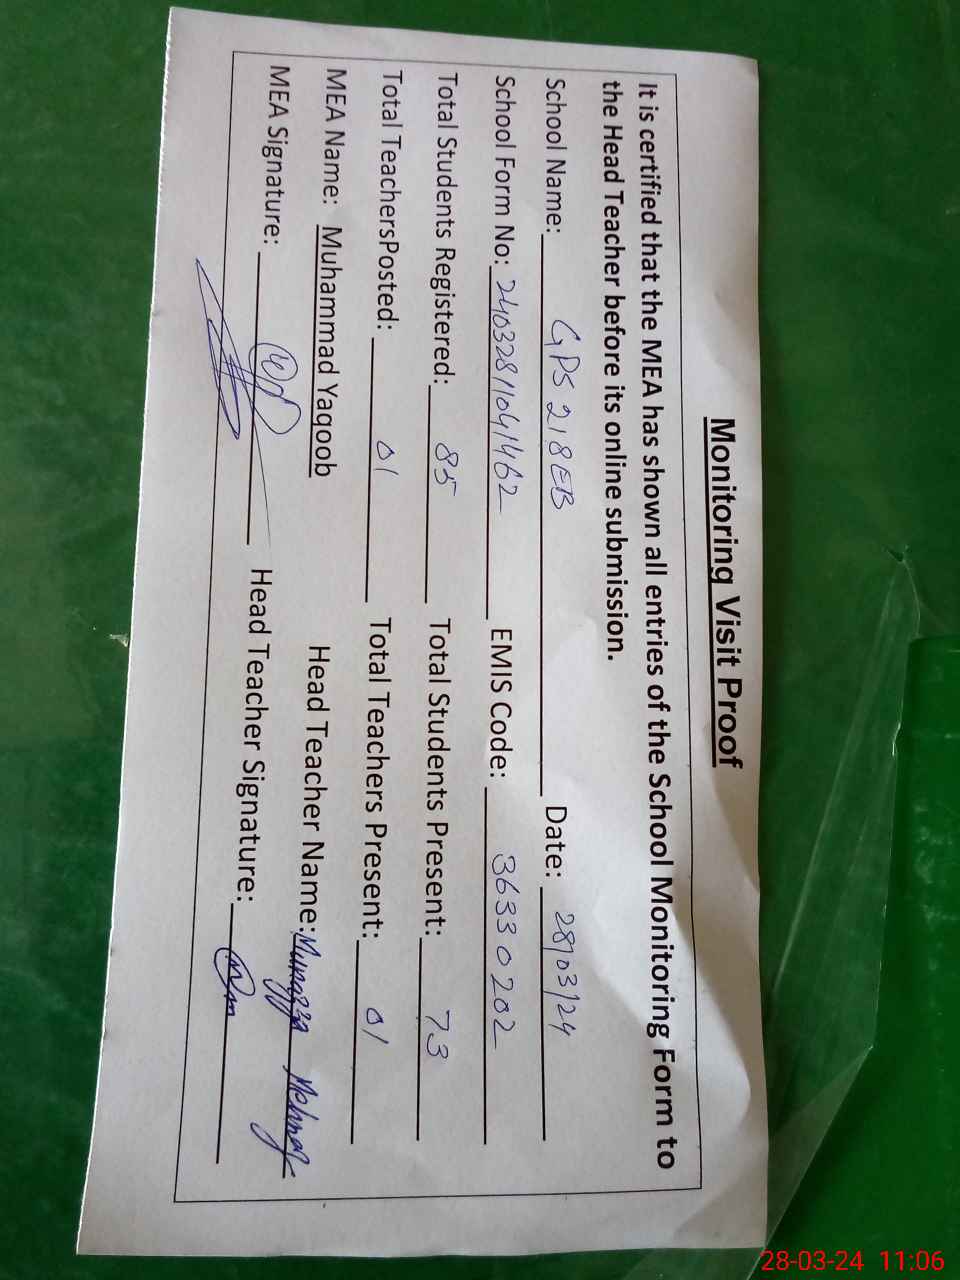 Monitoring Visit Proof
It is certified that the MEA has shown all entries of the School Monitoring Form to
the Head Teacher before its online submission.
School Name: GPS 218EB Date: 28/03/24
School Form No: 2403281104462 EMIS Code: 36330202
Total Students Registered: 85 Total Students Present: 73
Total TeachersPosted: 01 Total Teachers Present: 01
MEA Name: Muhammad Yaqoob Head Teacher Name: Munazza
MEA Signature: Head Teacher Signature:
28-03-24 11:06